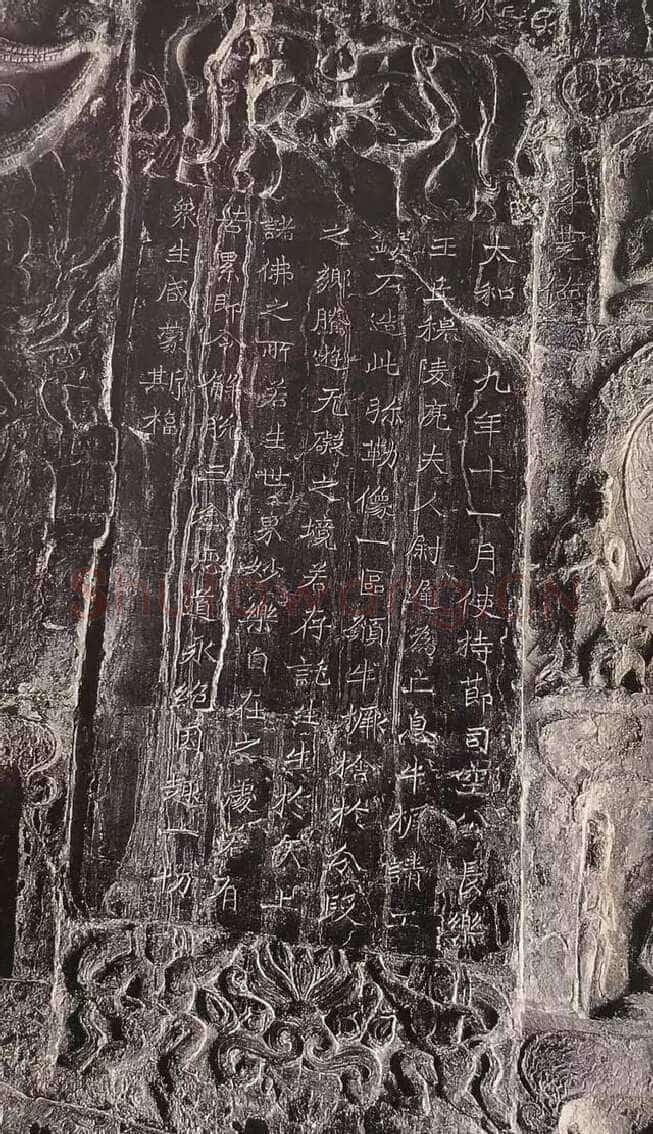 太和 九年十一月使持節司空公長樂
王丘穆陵亮夫人尉遲為亡息牛橛請工
鏤石造此弥勒像一區願牛橛捨於分段
之鄉騰遊无礙之境若存託生生於天上
諸佛之所若生世界妙樂自在之處若有
苦累即令解脫三塗惡道永絕因趣一切
衆生咸蒙斯福
shufawang.cn